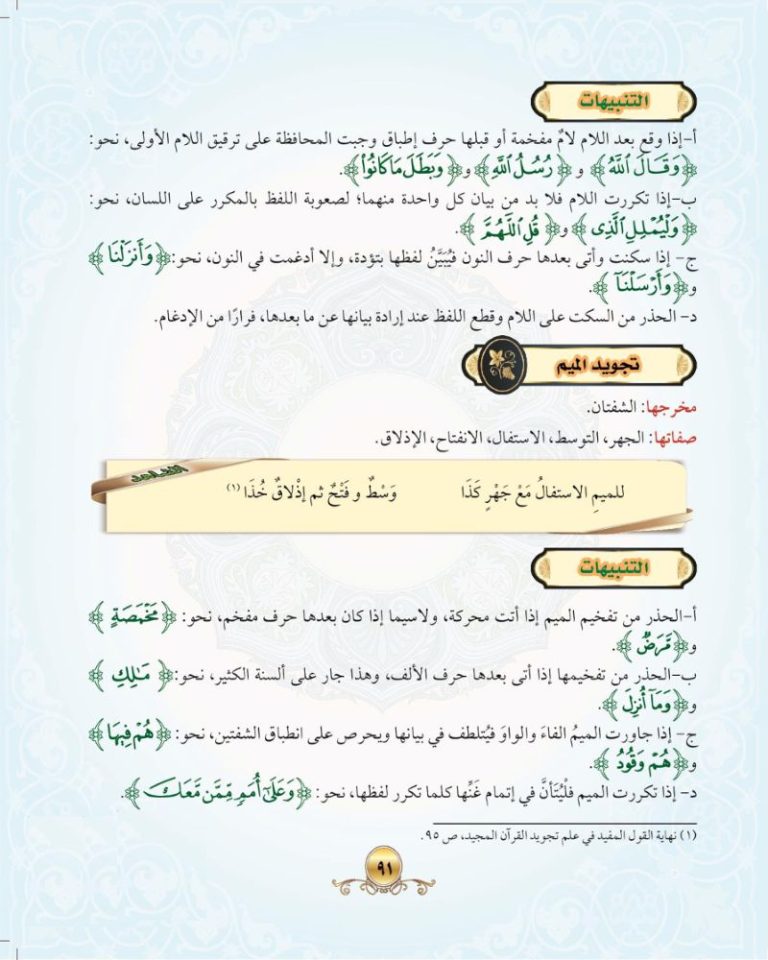 التنبيهات
أ-إذا وقع بعد اللام لامٌ مفخمة أو قبلها حرف إطباق وجبت المحافظة على ترقيق اللام الأولى، نحو:
﴿وَقَالَ ٱللَّهُ﴾ و ﴿رُسُلُ ٱللَّهِ﴾ و﴿وَبَطَلَ مَا كَانُوا۟﴾.
ب-إذا تكررت اللام فلا بد من بيان كل واحدة منهما؛ لصعوبة اللفظ بالمكرر على اللسان، نحو:
﴿وَلْيُمْلِلِ ٱلَّذِى﴾ و﴿قُلِ ٱللَّهُمَّ﴾.
ج- إذا سكنت وأتى بعدها حرف النون فيُبَيَّنُ لفظها بتؤدة، وإلا أدغمت في النون، نحو:﴿وَأَنزَلْنَا﴾
و﴿وَأَرْسَلْنَآ﴾.
د- الحذر من السكت على اللام وقطع اللفظ عند إرادة بيانها عن ما بعدها، فرارًا من الإدغام.
تجويد الميم
مخرجها: الشفتان.
صفاتها: الجهر، التوسط، الاستفال، الانفتاح، الإذلاق.
الشاهد
للميمِ الاستفالُ مَعْ جَهْرٍ كَذَا وَسْطٌ و فَتْحٌ ثم إذْلاقٌ خُذَا (١)
التنبيهات
أ-الحذر من تفخيم الميم إذا أتت محركة، ولاسيما إذا كان بعدها حرف مفخم، نحو: ﴿مَخْمَصَةٍ﴾
و﴿مَّرَضٌ﴾.
ب-الحذر من تفخيمها إذا أتى بعدها حرف الألف، وهذا جار على ألسنة الكثير، نحو:﴿مَـٰلِكِ﴾
و﴿وَمَآ أُنزِلَ﴾.
ج- إذا جاورت الميمُ الفاءَ والواوَ فيُتلطف في بيانها ويحرص على انطباق الشفتين، نحو: ﴿هُمْ فِيهَا﴾
و﴿هُمْ وَقُودُ﴾.
د- إذا تكررت الميم فلْيُتَأنَّ في إتمام غَنِّها كلما تكرر لفظها، نحو: ﴿وَعَلَىٰٓ أُمَمٍ مِّمَّن مَّعَكَ﴾.
(١) نهاية القول المفيد في علم تجويد القرآن المجيد، ص ٩٥.
٩١